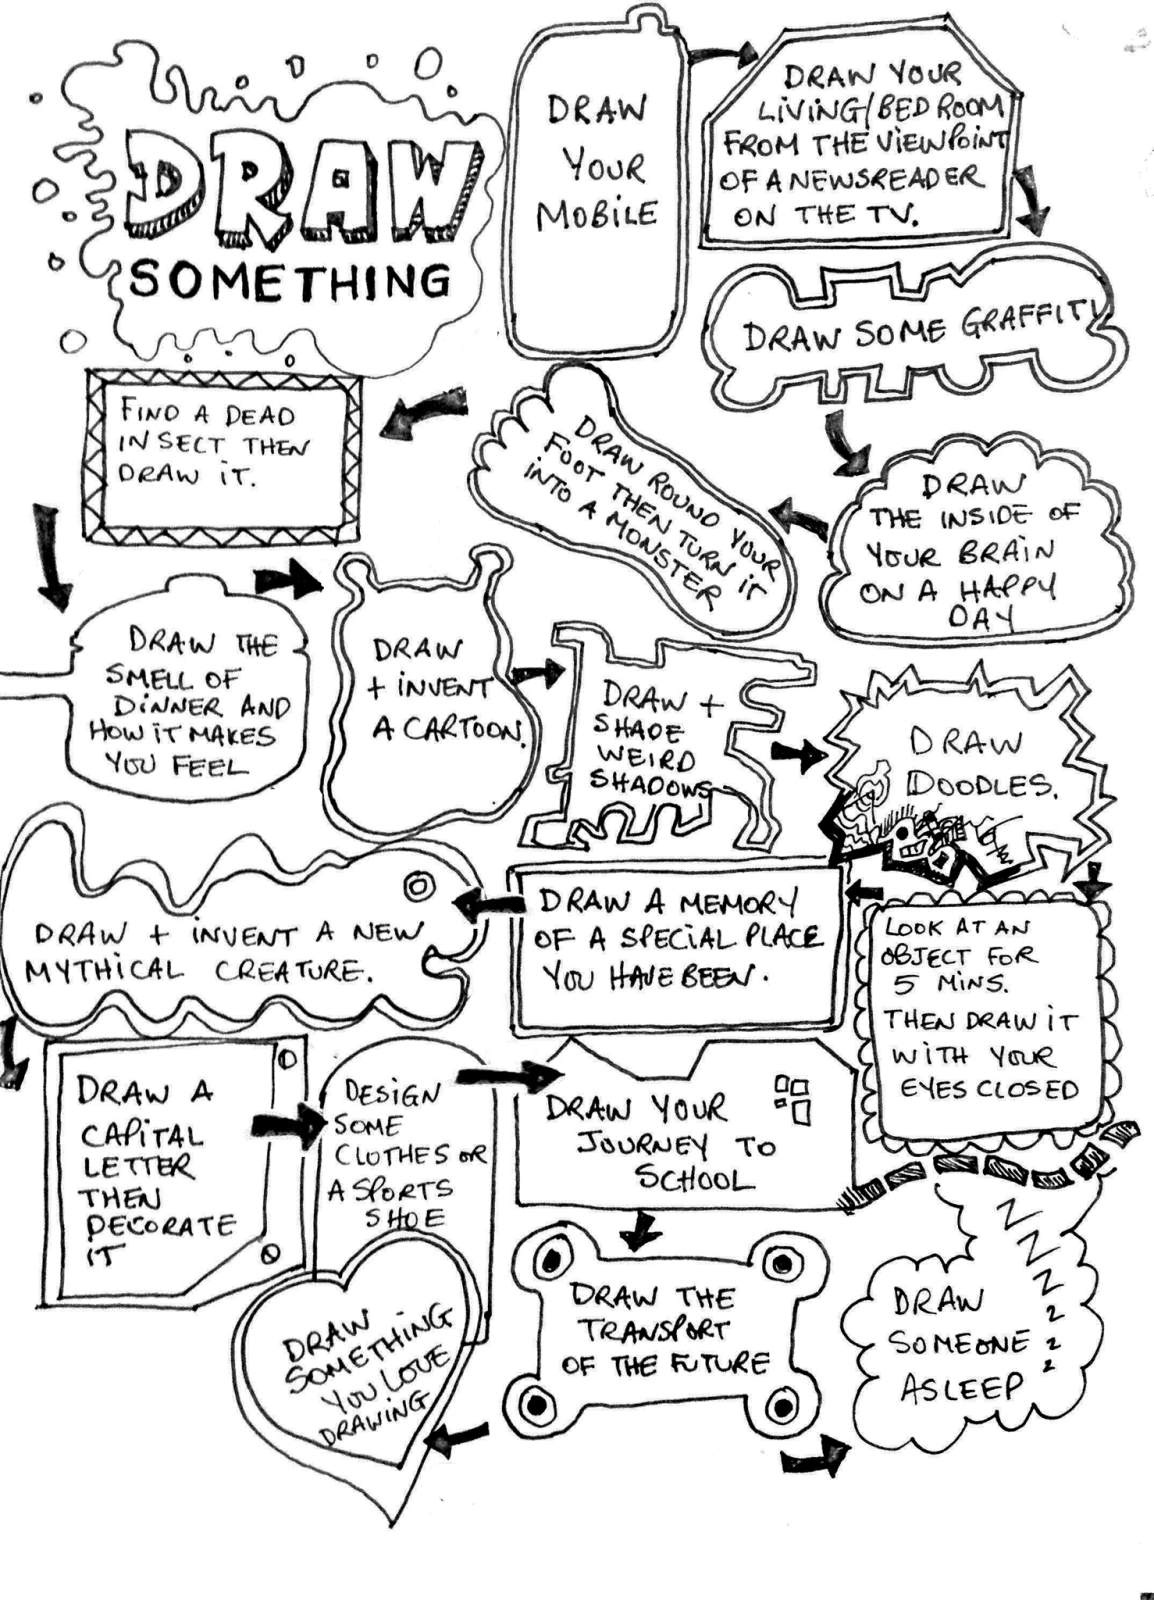 DRAW
SOMETHING
DRAW
YOUR
MOBILE
DRAW YOUR
LIVING/BED ROOM
FROM THE VIEWPOINT
OF A NEWSREADER
ON THE TV.
DRAW SOME GRAFFITI
DRAW
THE INSIDE OF
YOUR BRAIN
ON A HAPPY
DAY
DRAW ROUND YOUR
FOOT THEN TURN IT
INTO A MONSTER
FIND A DEAD
INSECT THEN
DRAW IT.
DRAW THE
SMELL OF
DINNER AND
HOW IT MAKES
YOU FEEL
DRAW
+ INVENT
A CARTOON.
DRAW +
SHADE
WEIRD
SHADOWS
DRAW
DOODLES.
LOOK AT AN
OBJECT FOR
5 MINS.
THEN DRAW IT
WITH YOUR
EYES CLOSED
DRAW A MEMORY
OF A SPECIAL PLACE
YOU HAVE BEEN.
DRAW + INVENT A NEW
MYTHICAL CREATURE.
DRAW A
CAPITAL
LETTER
THEN
DECORATE
IT
DESIGN
SOME
CLOTHES OR
A SPORTS
SHOE
DRAW YOUR
JOURNEY TO
SCHOOL
DRAW THE
TRANSPORT
OF THE FUTURE
DRAW
SOMETHING
YOU LOVE
DRAWING
Z
Z
Z
Z
Z
Z
DRAW
SOMEONE
ASLEEP